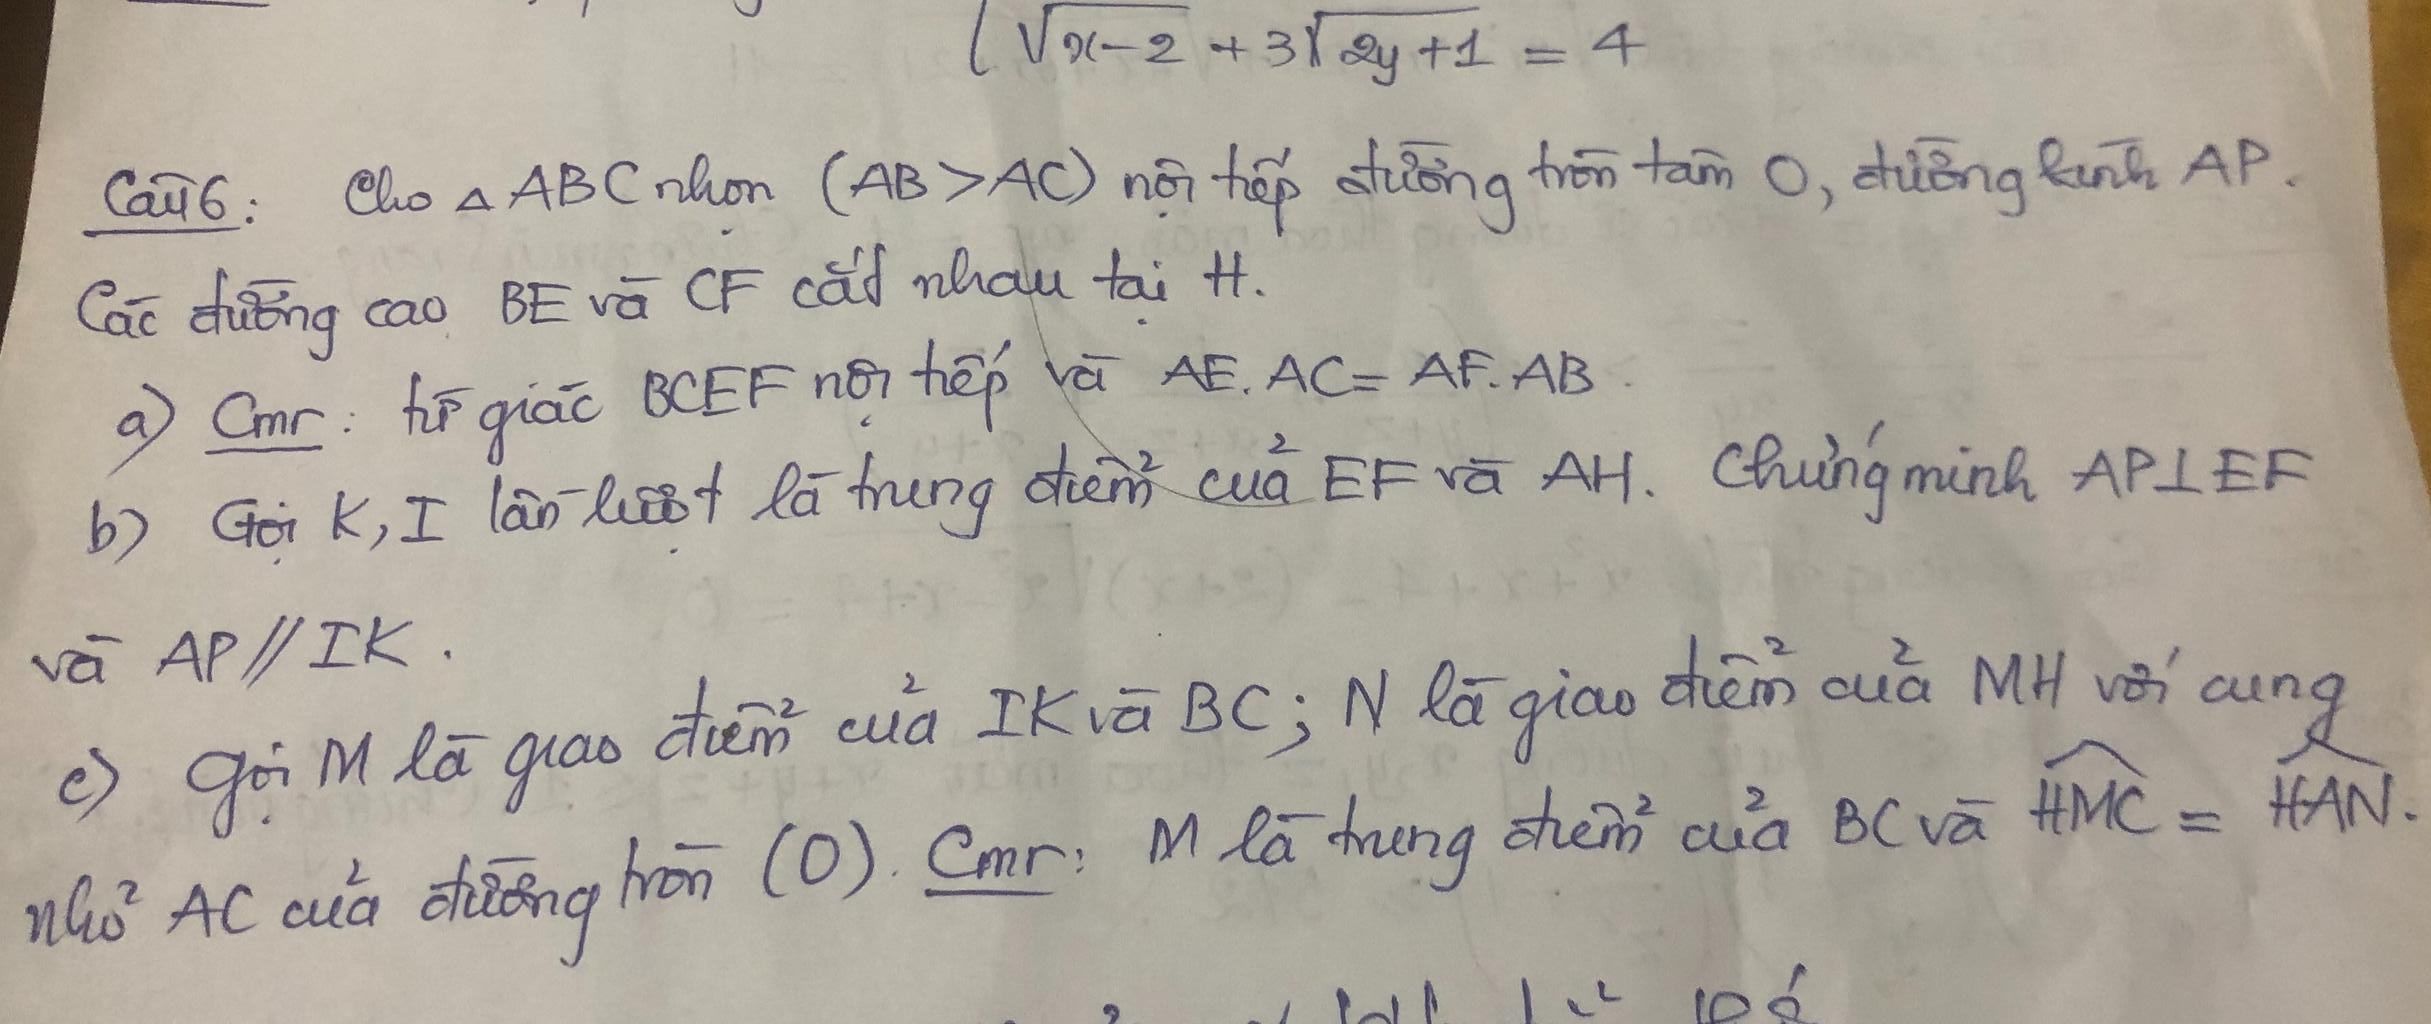 { √x-2 + 3√2y+1 = 4
Câu 6: Cho △ ABC nhọn (AB>AC) nội tiếp đường tròn tâm O, đường kính AP.
Các đường cao BE và CF cắt nhau tại H.
a) Cmr: tứ giác BCEF nội tiếp và AE.AC= AF.AB.
b) Gọi K, I lần lượt là trung điểm của EF và AH. Chứng minh AP⊥EF
và AP // IK.
c) Gọi M là giao điểm của IK và BC; N là giao điểm của MH với cung
nhỏ AC của đường tròn (O). Cmr: M là trung điểm của BC và HMC = HAN.